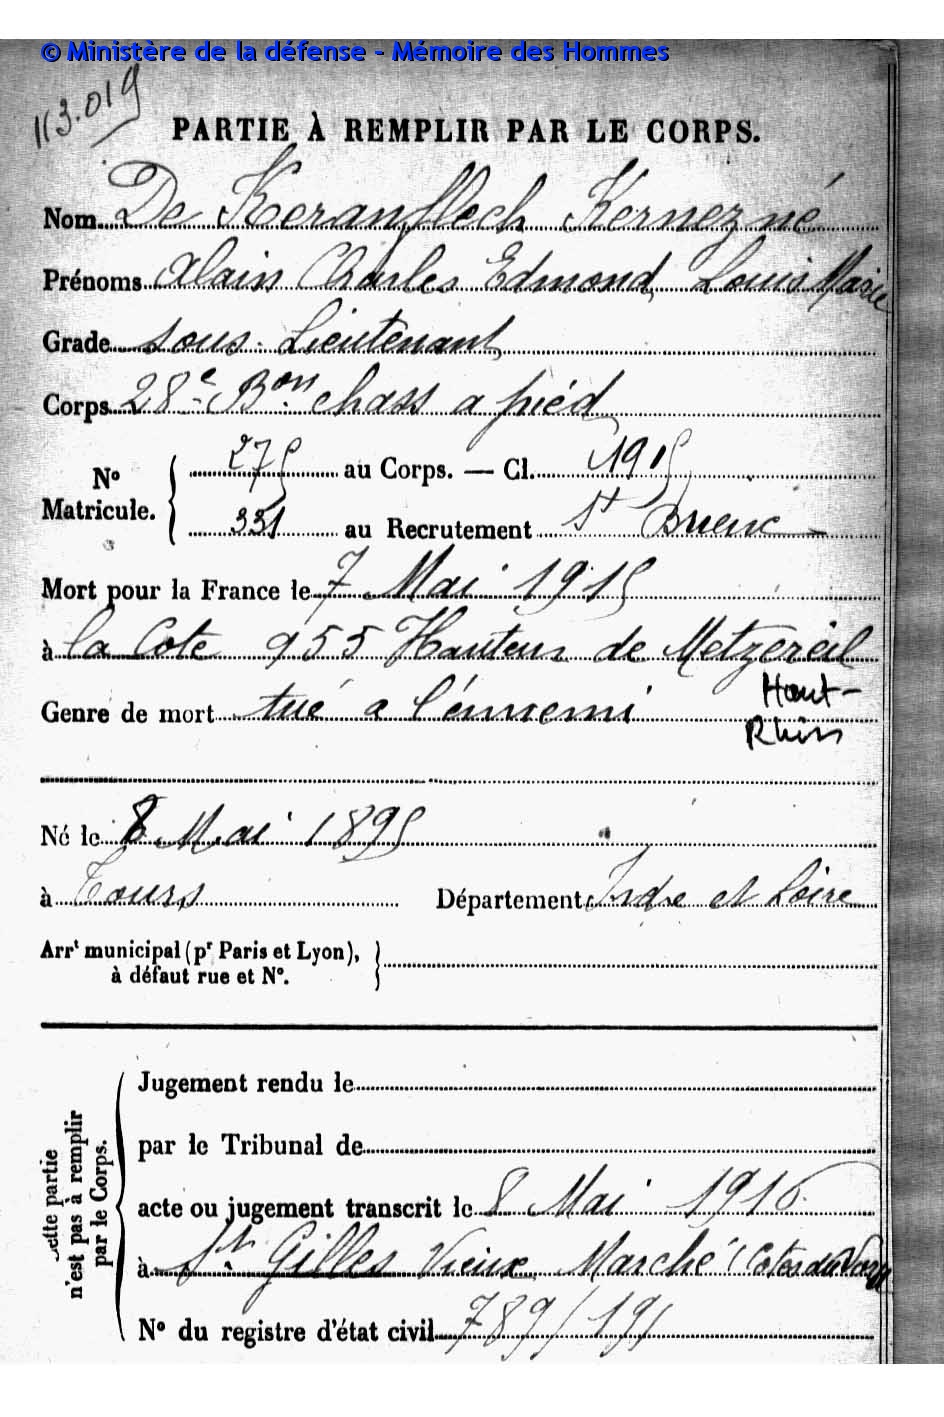 © Ministère de la défense - Mémoire des Hommes
113.019
PARTIE À REMPLIR PAR LE CORPS.
Nom De Keranflech Kernezné
Prénoms Alain Charles Edmond Louis Marie
Grade sous-Lieutenant
Corps 28e Bon chass a pied
No Matricule. { 275 au Corps. — Cl. 1915
331 au Recrutement St Brieuc
Mort pour la France le 7 Mai 1915
à la Cote 955 Hauteur de Metzereil
Haut-
Genre de mort tué a l'ennemi
Rhin
Né le 8 Mai 1895
à Tours Département Indre et Loire
Arrt municipal (pr Paris et Lyon), à défaut rue et No. }
Cette partie n'est pas à remplir par le Corps.
Jugement rendu le
par le Tribunal de
acte ou jugement transcrit le 8 Mai 1916
à St Gilles Vieux Marché (Cotes du Nord
No du registre d'état civil 789/191